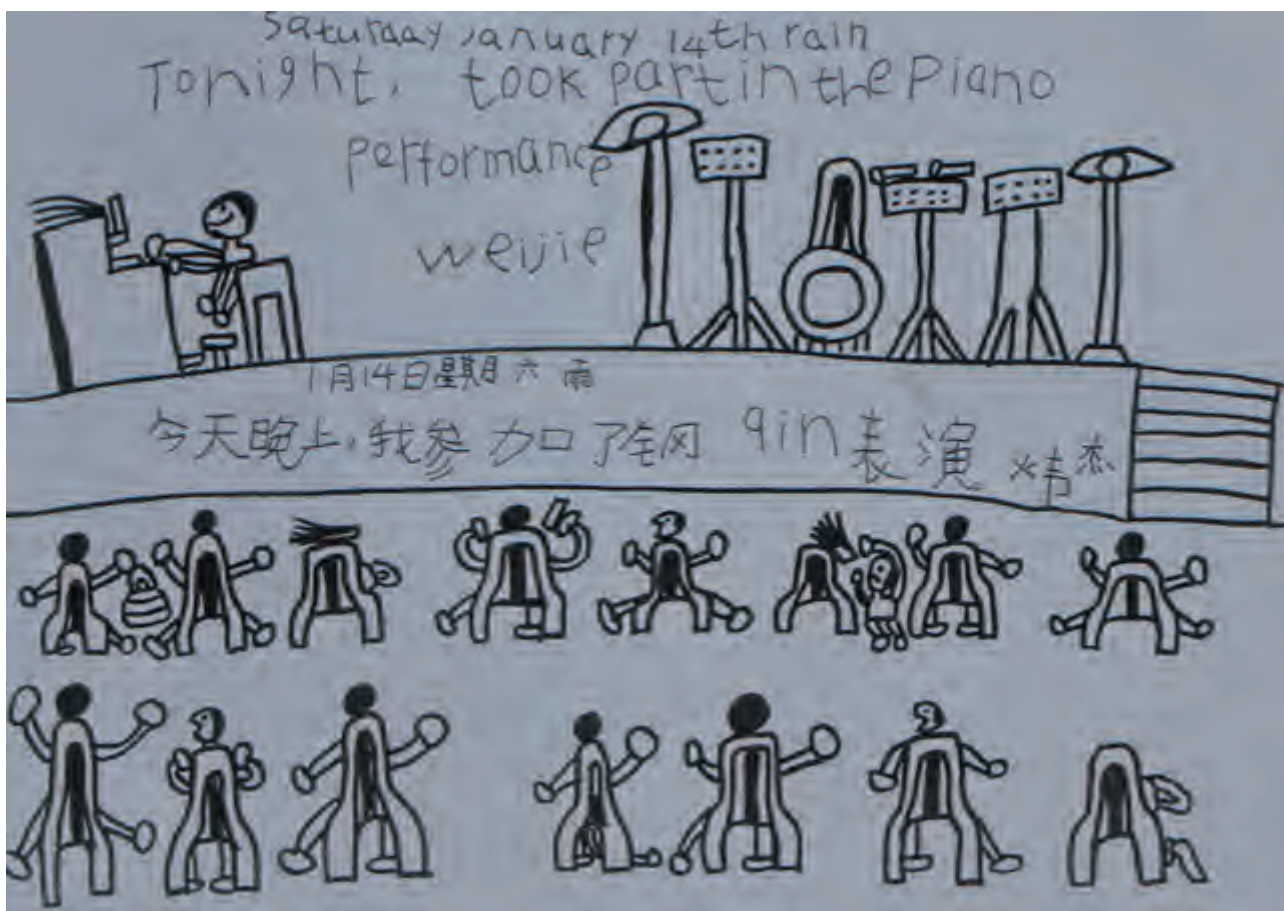 Saturday January 14th rain
Tonight, took part in the Piano
performance
weijie
1月14日星期六 雨
今天晚上，我参加了钢 qin表演 炜杰